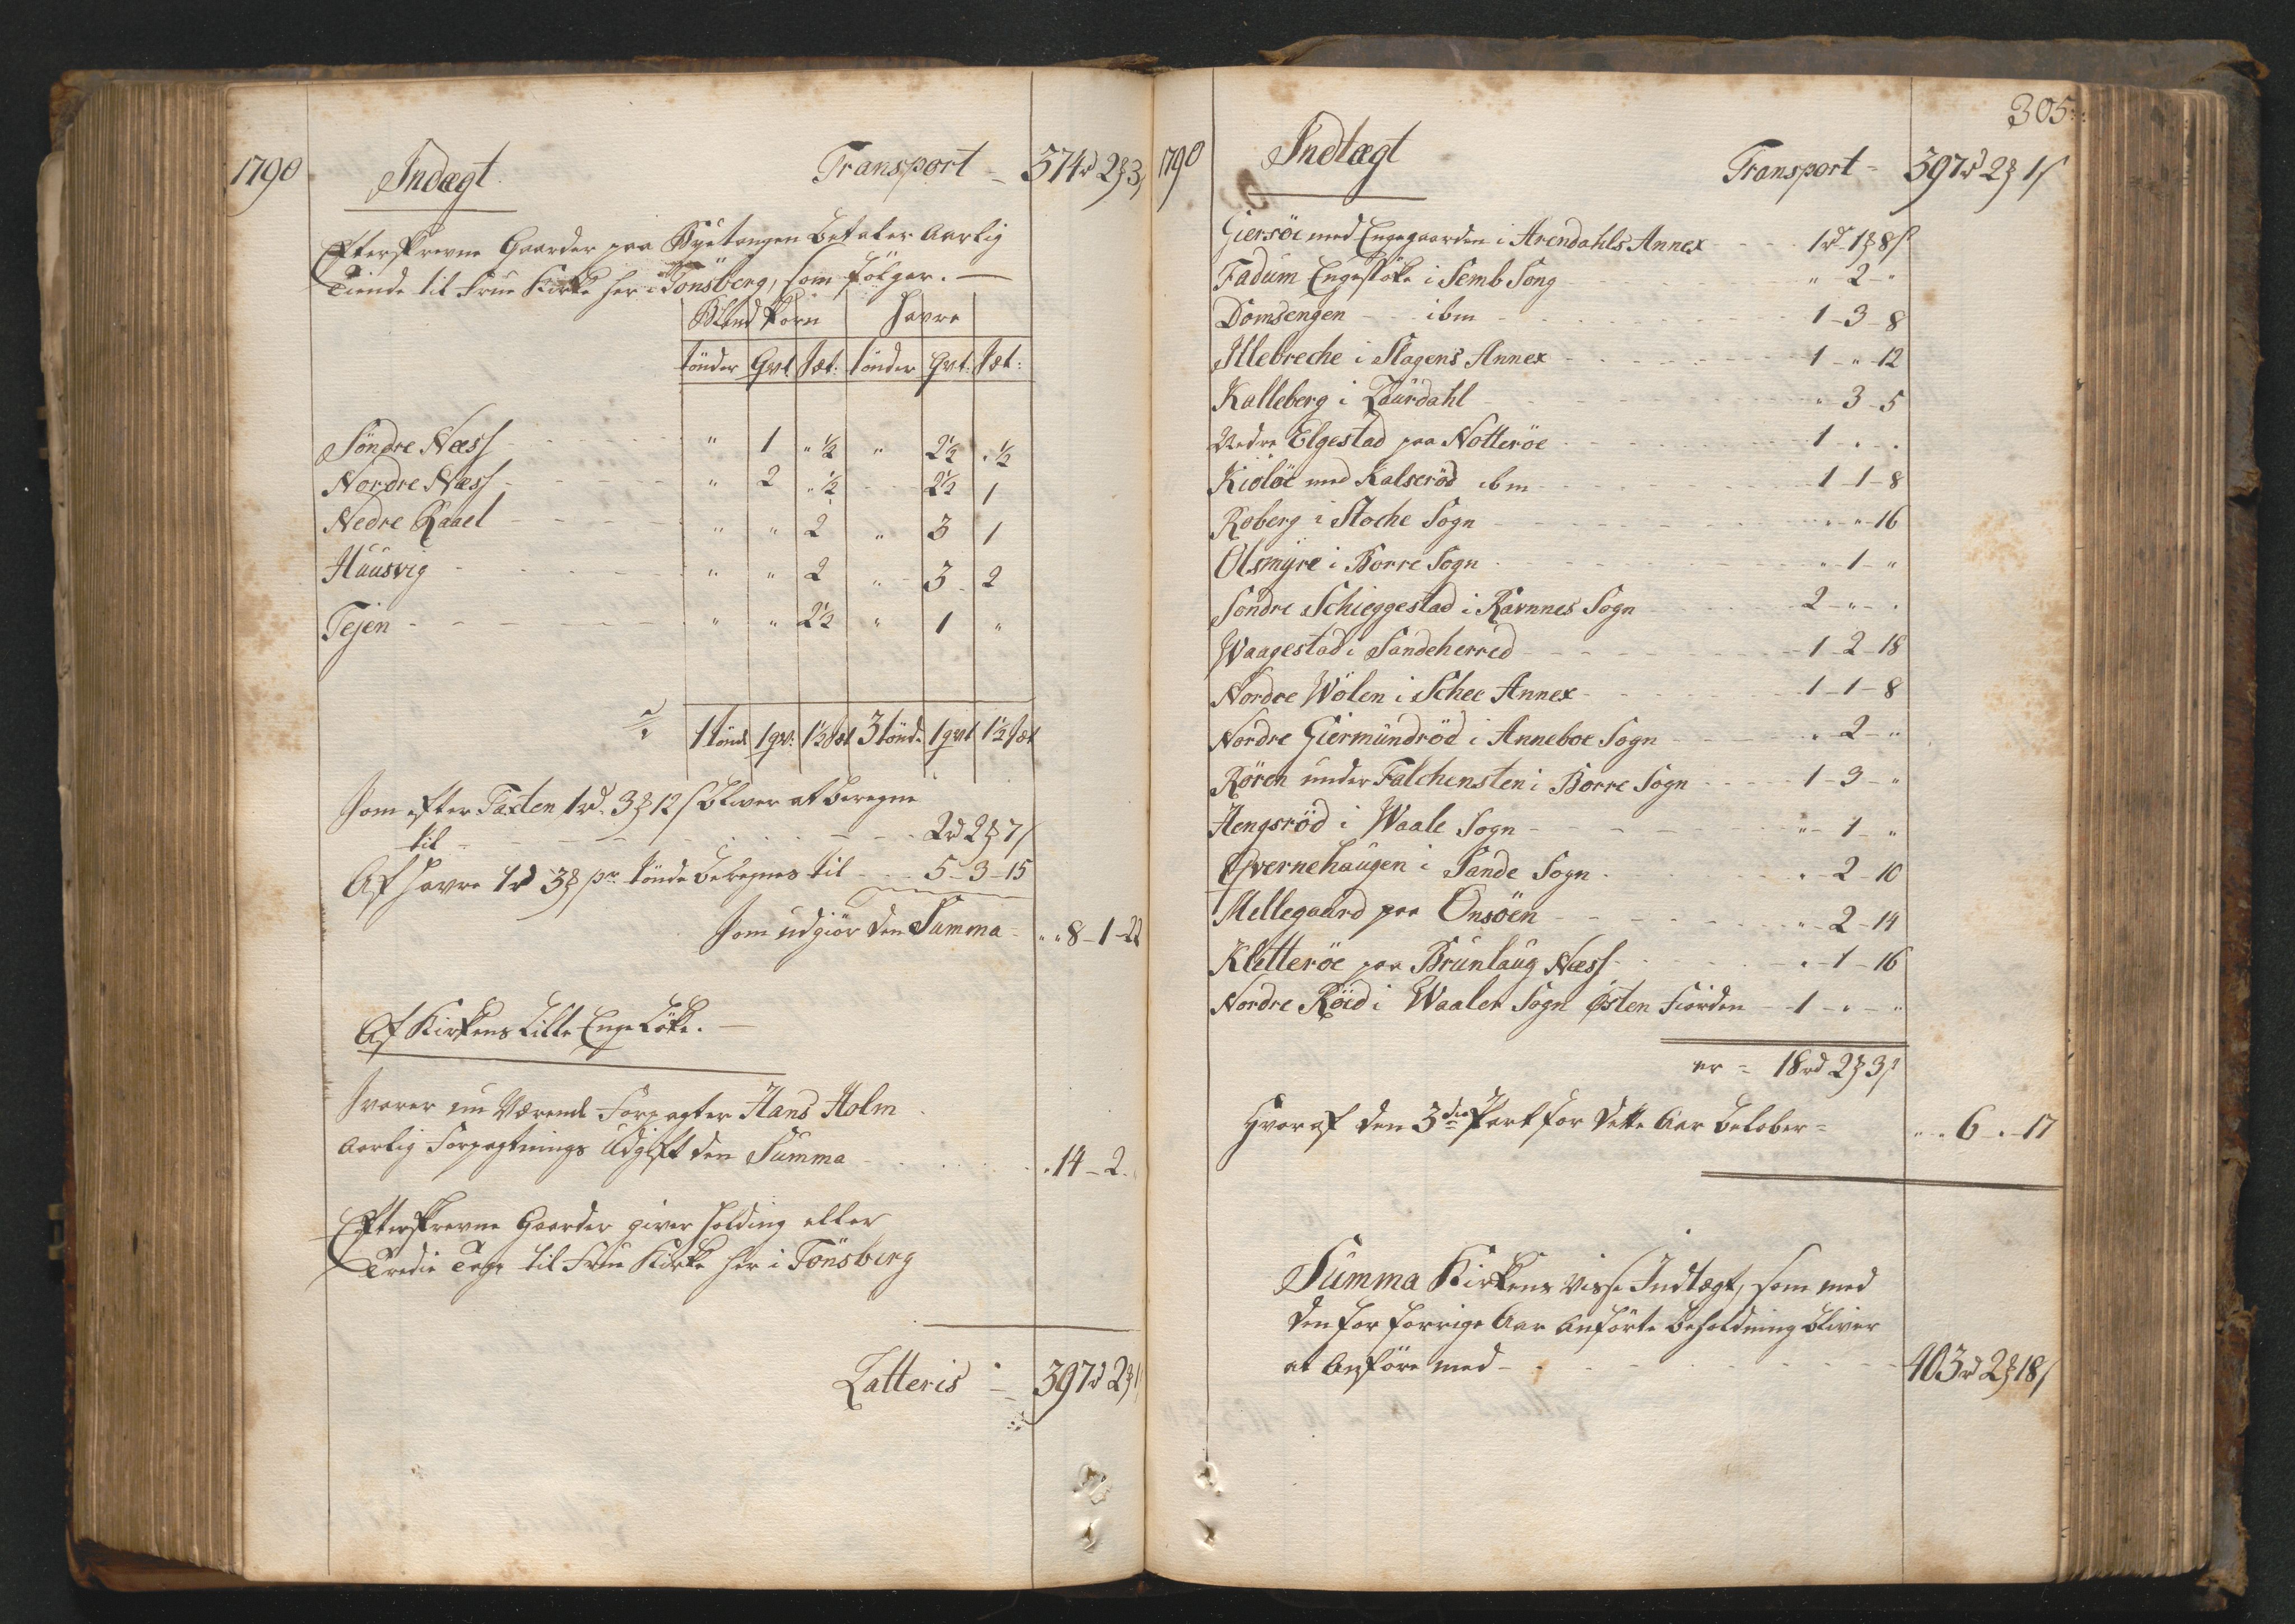 1790
Indægt
Transport - 374rd 2ß 3s
Efterskrevne Gaarder paa Byetangen betaler Aarlig
Tiende til Frue Kirke her i Tönsberg, som fölger. —
Bland Korn Havre
tönder Qvt sæt: tönder Qvt: sæt:
Söndre Næss - - - " 1 " ½ " 2½ " ½
Nordre Næss - - - " 2 " ½ - 2½ 1
Nedre Raael - - - " " 2 " 3 1
Huusvig - - - " " 2 " 3 2
Tejen - - - " " 2½ " 1 "
1 tönd 1 qv: 1½ sæt 3 tönd. 1 qvt 1½ sæt
som efter Taxten 1rd. 3ß 12s bliver at beregne
til - - - 2rd 2ß 7s
Af Havre 1rd 3ß pr tönde beregnes til - - 5-3-15
som udgiör den Summa - " " 8-1-22
Af Kirkens Lille Enge Löke. —
svarer nu Værende Forpagter Hans Holm
aarlig Forpagtnings Udgift den Summa - - - . 14-2.
Efterskrevne Gaarder giver Holding eller
Tredie Tage til Frue Kirke her i Tönsberg
Latteris = 397rd 2ß 1
305
1790
Indtægt
Transport = 397rd 2ß 1s
Giersöe med Engegaarden i Arendahls Annex - - - 1rd 1ß 8s
Fadum Engeslöke i Semb Song - - - " 2 - "
Domsengen - - ibm - - - 1-3-8
Illebreche i Slagens Annex - - - 1-"-12
Kalleberg i Laurdahl - - - " 3-5
Nedre Elgestad paa Notteröe - - - 1 - . .
Kiölöe med Kalseröd ibm - - - 1-1-8
Roberg i Stoche Sogn - - - " "-16
Olsmyre i Borre Sogn - - - "-1-"
Söndre Schieggestad i Ravnnes Sogn - - - 2-"-.
Waagestad i Sandeherred - - - 1-2-18
Nordre Wölen i Schee Annex - - - 1-1-8
Nordre Giermundröd i Anneboe Sogn - - - " 2-"
Rören under Falchensten i Borre Sogn - - - 1-3-"
Hengsröd i Waale Sogn - - - "-1-"
Qvernehaugen i Sande Sogn - - - . 2-10
Mellegaard paa Onsöen - - - "-2-14
Kletteröe paa Brunlaug Næss - - - .-1-16
Nordre Röed i Waaler Sogn Østen Fiörden - - 1-"-"
er = 18rd 2ß 3s
Hvoraf den 3die Part for dette Aar belober = " . 6 . -17
Summa Kirkens visse Indtægt, som med
den for forrige Aar anförte beholdning bliver
at Anföre med - - - 403rd 2ß 18s